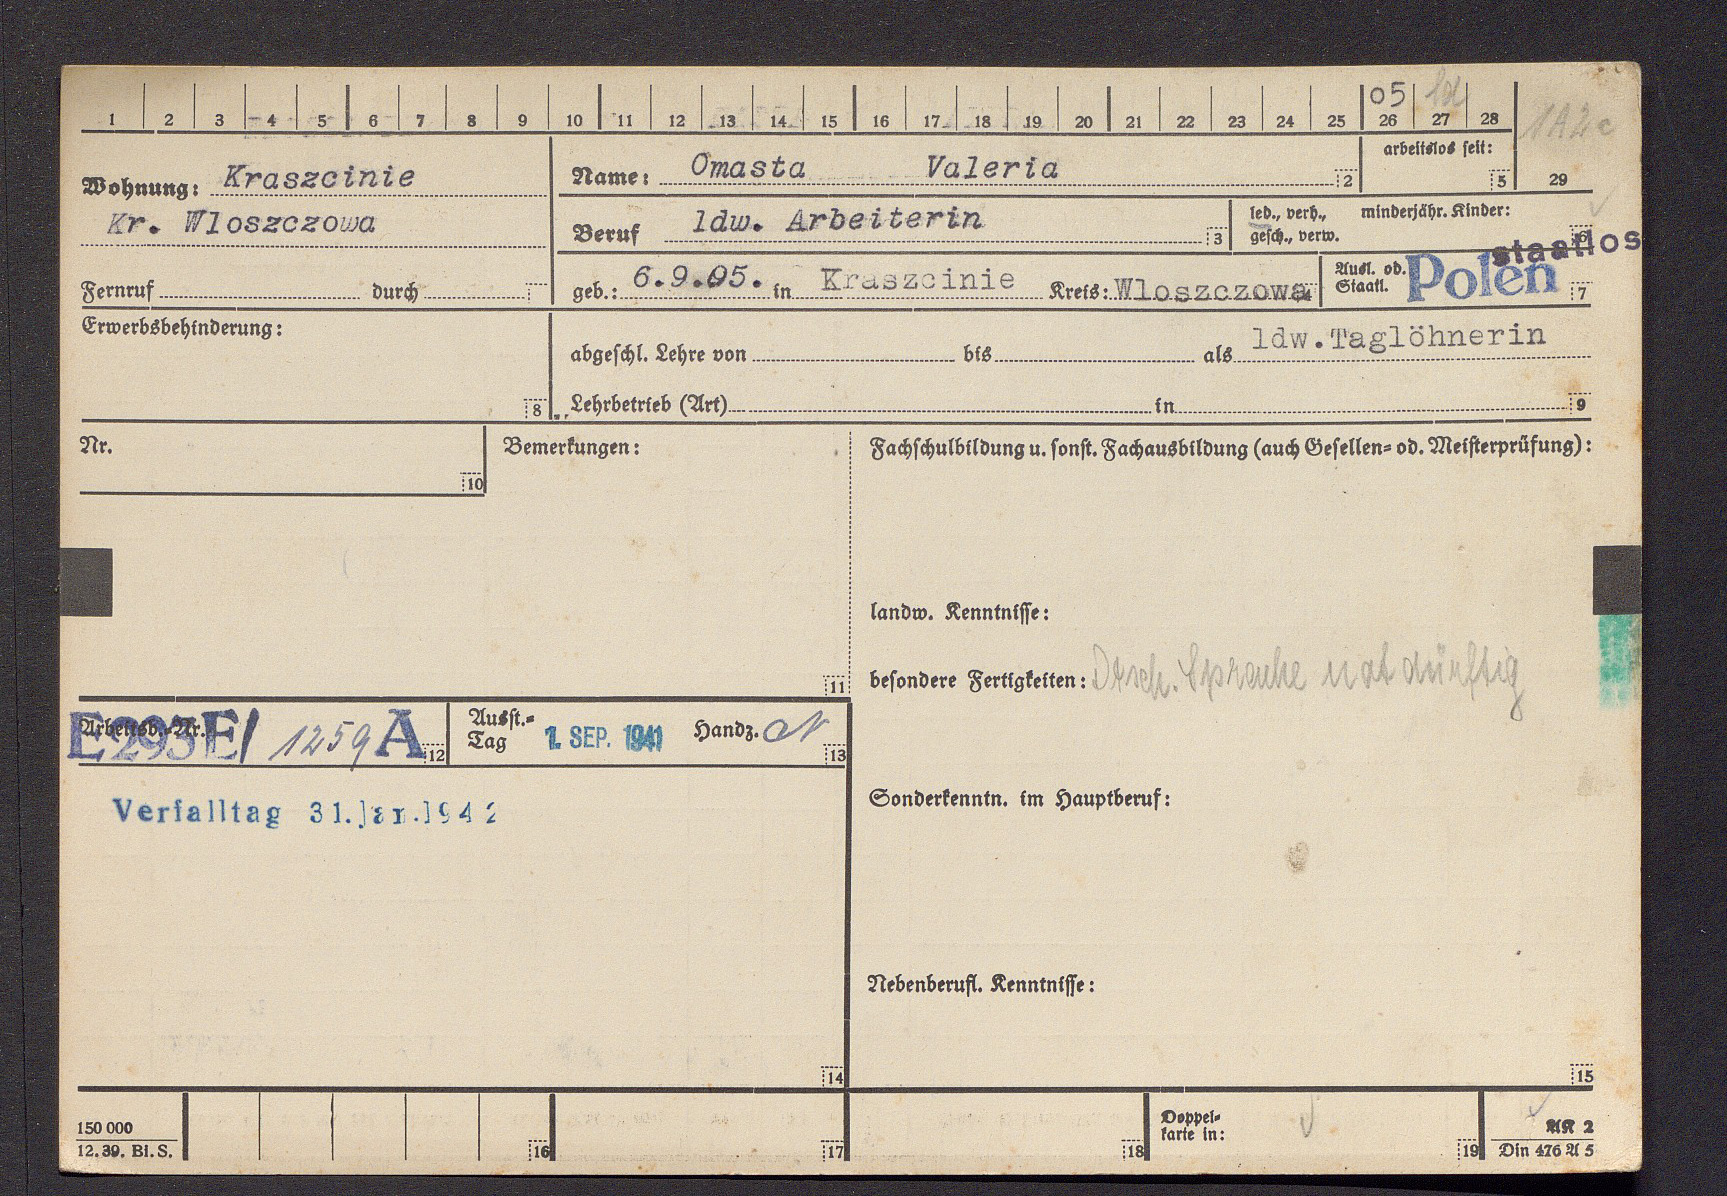 1 2 3 4 5 6 7 8 9 10 11 12 13 14 15 16 17 18 19 20 21 22 23 24 25 26 27 28
05 ld
1A2c
29
Wohnung: Kraszcinie
Kr. Wloszczowa
Fernruf durch
Name: Omasta Valeria 2
arbeitslos seit: 5
Beruf ldw. Arbeiterin 3
led., verh., minderjähr. Kinder:
gesch., verw. 6
staatlos
geb.: 6.9.05. in Kraszcinie Kreis: Wloszczowa 4
Ausl. od. Polen
Staatl. 7
Erwerbsbehinderung:
8
abgeschl. Lehre von bis als ldw.Taglöhnerin
Lehrbetrieb (Art) in 9
Nr.
10
Bemerkungen:
11
Fachschulbildung u. sonst. Fachausbildung (auch Gesellen- od. Meisterprüfung):
landw. Kenntnisse:
besondere Fertigkeiten: Dtsch. Sprache notdürftig
Arbeitsb.-Nr.
E293E/ 1259 A 12
Ausst.-
Tag 1. SEP. 1941 Handz. 13
Verfalltag 31.Jan.1942
14
Sonderkenntn. im Hauptberuf:
Nebenberufl. Kenntnisse:
15
150 000
12. 39. Bl. S.
16 17 18
Doppel-
karte in: 19
AK 2
Din 476 A 5